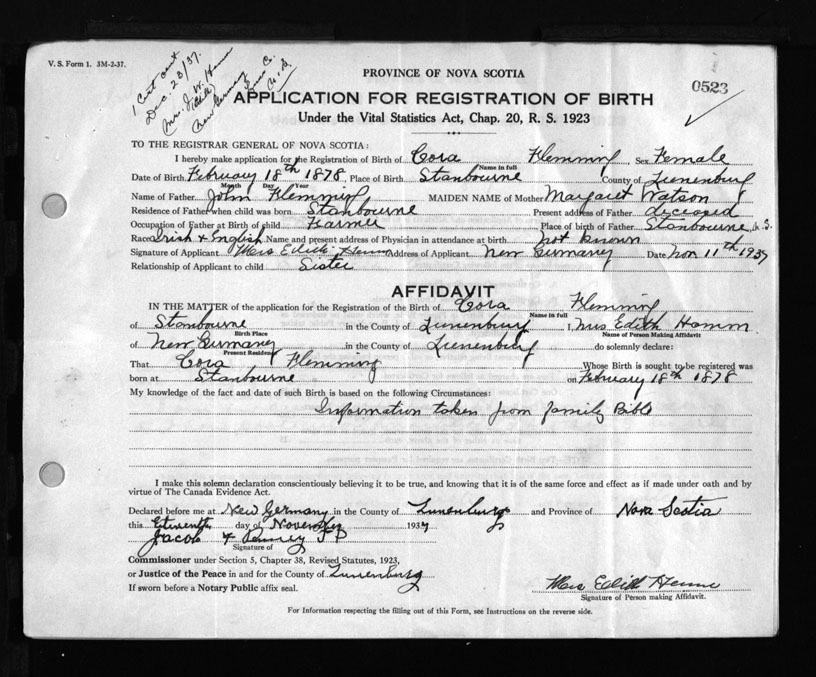 V. S. Form 1. 3M-2-37.
1 Cert sent
Dec. 23/37.
Mrs. J. W.
New Germany
PROVINCE OF NOVA SCOTIA
0523
APPLICATION FOR REGISTRATION OF BIRTH
Under the Vital Statistics Act, Chap. 20, R. S. 1923
TO THE REGISTRAR GENERAL OF NOVA SCOTIA:
I hereby make application for the Registration of Birth of Cora Flemming, Sex Female
Name in full
Date of Birth February 18th 1878 Place of Birth Stanbourne County of Lunenburg
Month Day Year
Name of Father John Flemming MAIDEN NAME of Mother Margaret Watson
Residence of Father when child was born Stanbourne Present address of Father deceased
Occupation of Father at Birth of child Farmer Place of birth of Father Stanbourne N. S.
Race Irish & English Name and present address of Physician in attendance at birth not known
Signature of Applicant Mrs Edith Address of Applicant New Germany Date Nov 11th 1937
Relationship of Applicant to child Sister
AFFIDAVIT
IN THE MATTER of the application for the Registration of the Birth of Cora Flemming
Name in full
of Stanbourne in the County of Lunenburg I, Mrs Edith Hamm
Birth Place Name of Person Making Affidavit
of New Germany in the County of Lunenburg do solemnly declare:
Present Residence
That Cora Flemming Whose Birth is sought to be registered was
born at Stanbourne on February 18th 1878
My knowledge of the fact and date of such Birth is based on the following Circumstances:
Information taken from family Bible
I make this solemn declaration conscientiously believing it to be true, and knowing that it is of the same force and effect as if made under oath and by
virtue of The Canada Evidence Act.
Declared before me at New Germany in the County of Lunenburg and Province of Nova Scotia
this day of November 1937
Jacob J P
Signature of
Commissioner under Section 5, Chapter 38, Revised Statutes, 1923,
or Justice of the Peace in and for the County of Lunenburg
If sworn before a Notary Public affix seal.
Mrs Edith
Signature of Person making Affidavit.
For Information respecting the filling out of this Form, see Instructions on the reverse side.